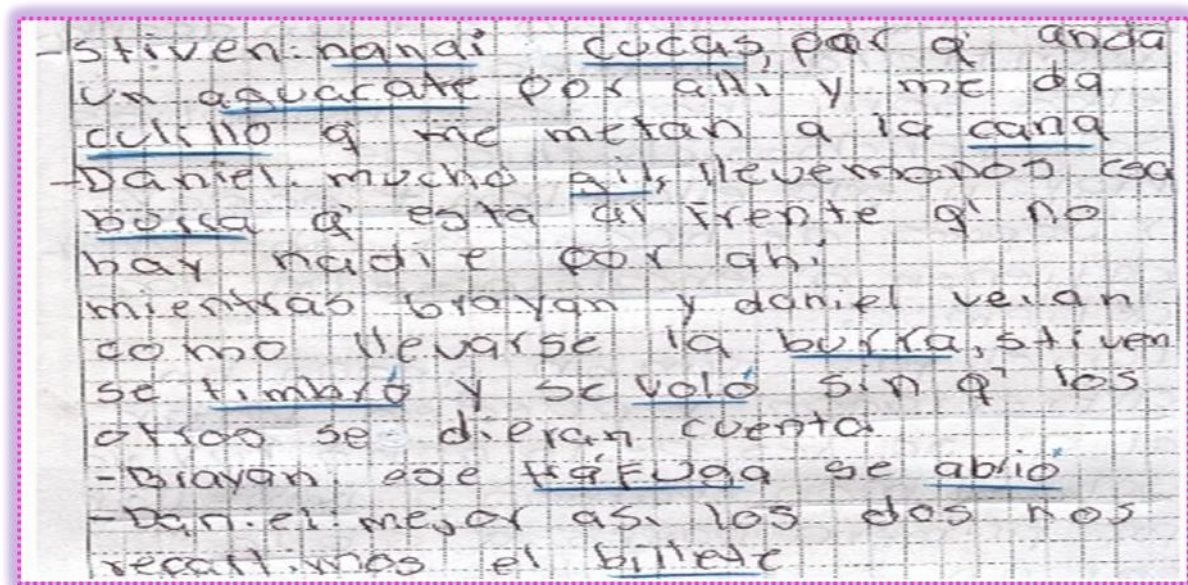 -stiven: nandi cucas, por q' anda
un aguacate por alli y me da
culillo q' me metan a la cana
-Daniel: mucho gil, llevemonos esa
burra q' esta al frente q' no
hay nadie por ahi
mientras brayan y daniel veian
como llevarse la burra, stiven
se timbró y se voló sin q' los
otros se dieran cuenta
-Brayan: ese tráfuga se abrió
-Daniel: mejor asi los dos nos
repartimos el billete